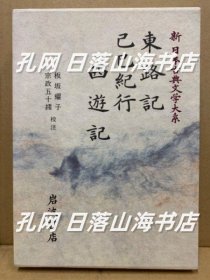 新 日本古典文学大系
東路記
己巳紀行
西遊記
板坂耀子
宗政五十緒
校注
岩波書店
孔网 日落山海书店
孔网 日落山海书店
孔网 日落山海书店